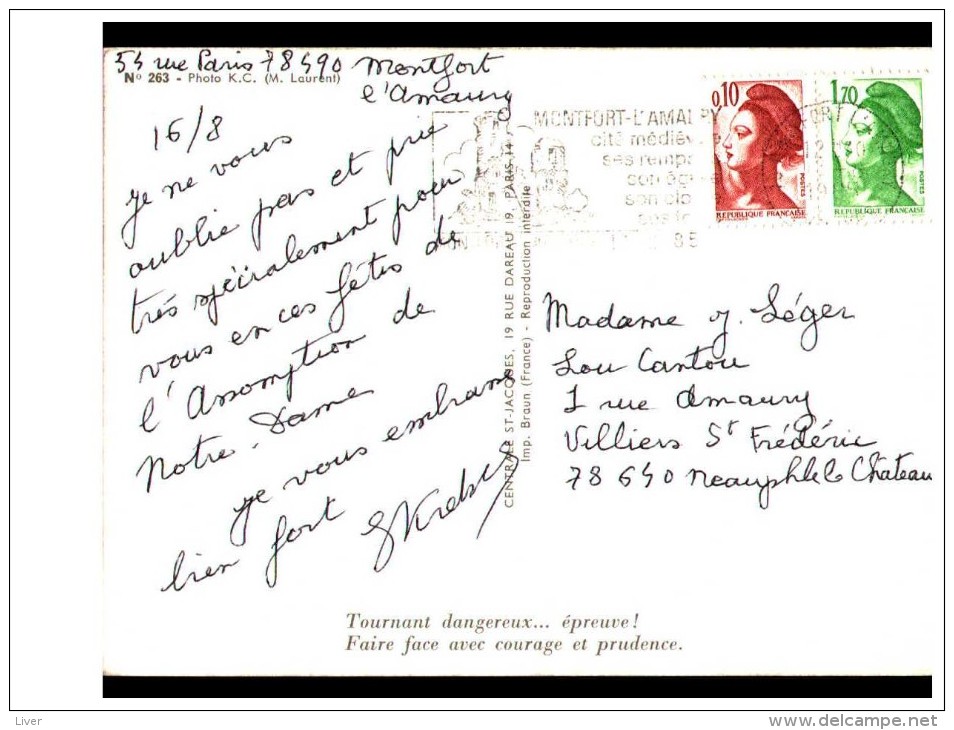 54 rue Paris 78490 Montfort
l'Amaury
N° 263 - Photo K.C. (M. Laurent)
16/8
je ne vous
oublie pas et prie
très spécialement pour
vous en ces fêtes de
l'Assomption de
Notre-Dame
je vous embrasse
bien fort
CENTRALE ST-JACQUES, 19 RUE DAREAU 19, PARIS 14
Imp. Braun (France) - Reproduction interdite
MONTFORT-L'AMAURY
cité médiév
ses rempa
son égl
son clo
85
0,10
POSTES
REPUBLIQUE FRANÇAISE
1,70
POSTES
REPUBLIQUE FRANÇAISE
Madame J. Léger
Lou Cantou
1 rue Amaury
Villiers St Frédéric
78640 Neauphle le Château
Tournant dangereux... épreuve!
Faire face avec courage et prudence.
Liver
www.delcampe.net